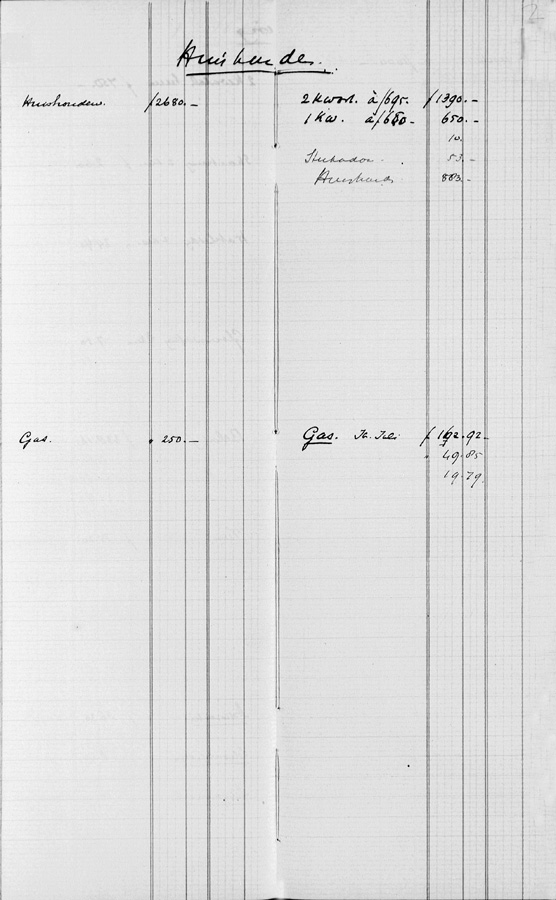 2
Huishouden.
Huishouden. ƒ 2680.—
2 Kwart. à ƒ 695. ƒ 1390.—
1 Kw. à ƒ 650.— 650.—
10.
53.—
Huish 583.—
Gas. „ 250.—
Gas. ƒ 192.92
„ 49.85
19.79